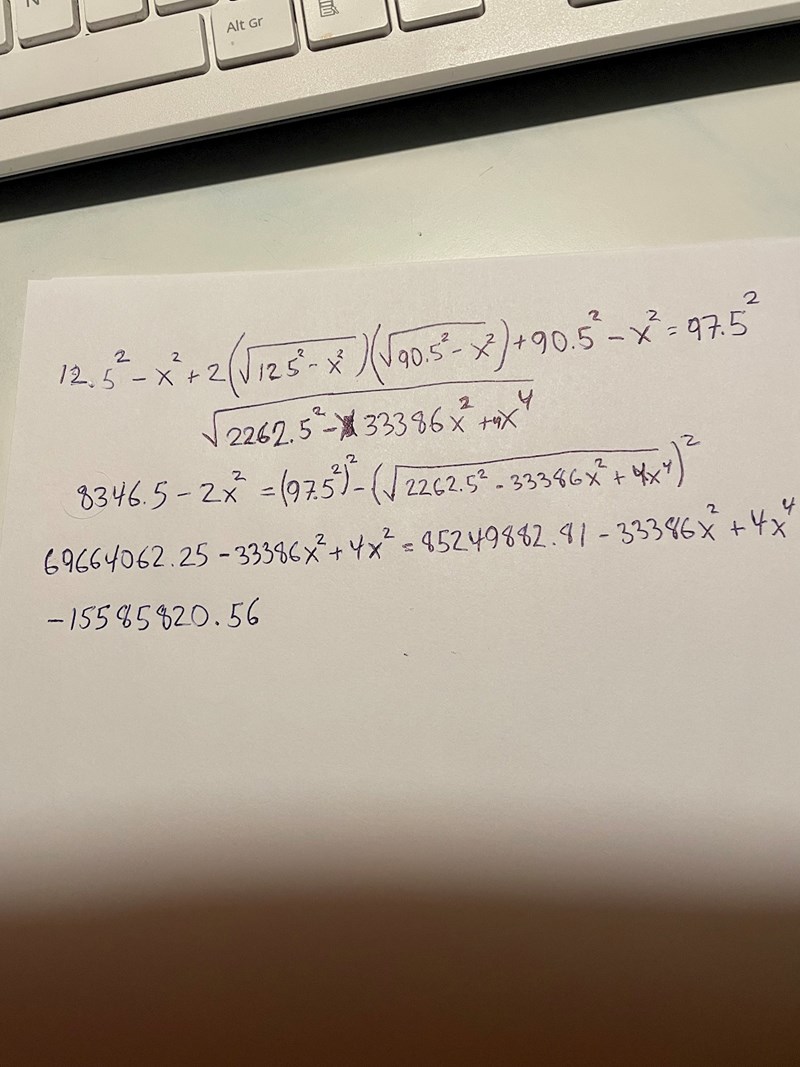 N
Alt Gr
12.5² - x² + 2(√12.5² - x²)(√90.5² - x²) + 90.5² - x² = 97.5²
√2262.5² - 33386x² + 4x⁴
8346.5 - 2x² = (97.5²)² - (√2262.5² - 33386x² + 4x⁴)²
69664062.25 - 33386x² + 4x² = 85249882.81 - 33386x² + 4x⁴
-15585820.56